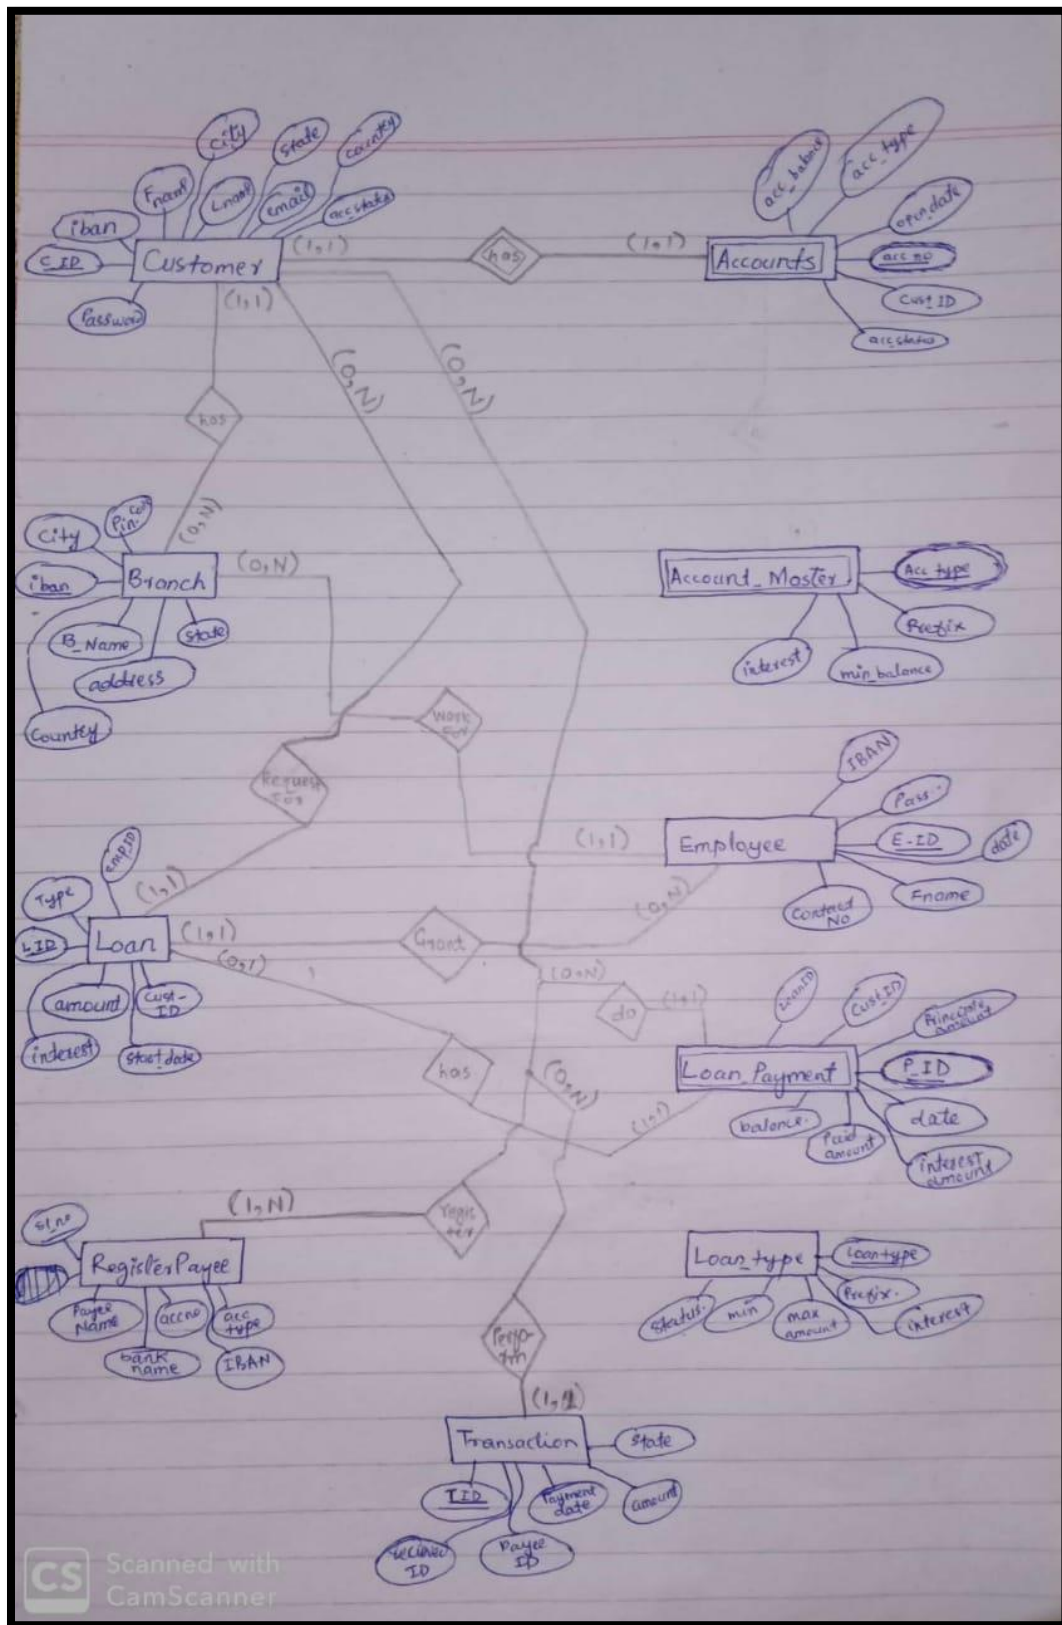 city
state
country
Fname
Lname
email
acc.status
iban
C_ID
Customer
Password
(1,1)
has
(1,1)
acc_balance
acc_type
open_date
Accounts
acc no
Cust_ID
acc.status
(1,1)
(0,N)
(0,N)
has
(0,N)
City
iban
Branch
(0,N)
B_Name
State
address
Country
Account_Master
Acc type
Prefix
interest
min_balance
Work
For
Request
For
IBAN
Pass.
E-ID
date
Employee
(1,1)
Fname
Contact
No
(0,N)
emp_ID
(1,1)
Type
L_ID
Loan
(1,1)
Grant
(0,1)
amount
Cust-
ID
interest
start_date
(0,N)
do
(1,1)
LoanID
Cust_ID
amount
Loan_Payment
P_ID
date
balance.
Paid
amount
interest
amount
has
(0,N)
(1,1)
(1,N)
regis
ter
sl_no
RegisterPayee
Payee
Name
accno
acc
type
bank
name
IBAN
Loan_type
Loantype
Prefix.
interest
Status.
min
max
amount
Perfo-
rm
Transaction
State
TID
Payment
date
amount
reciever
ID
Payee
ID
CS
Scanned with
CamScanner